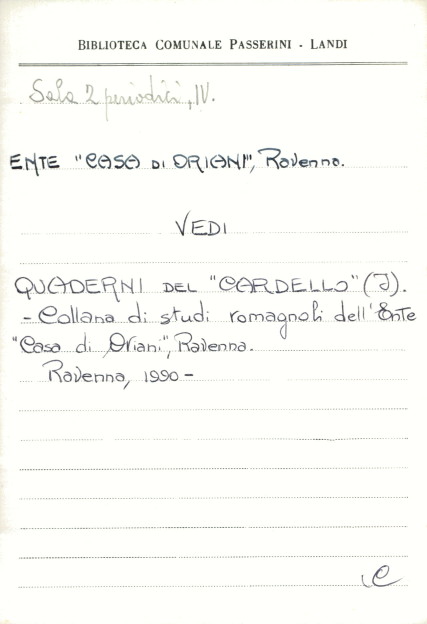 BIBLIOTECA COMUNALE PASSERINI - LANDI
Sala 2 periodici, IV.
ENTE "CASA DI ORIANI", Ravenna.
VEDI
QUADERNI DEL "CARDELLO" (I).
- Collana di studi romagnoli dell'Ente
"Casa di Oriani", Ravenna.
Ravenna, 1990 -